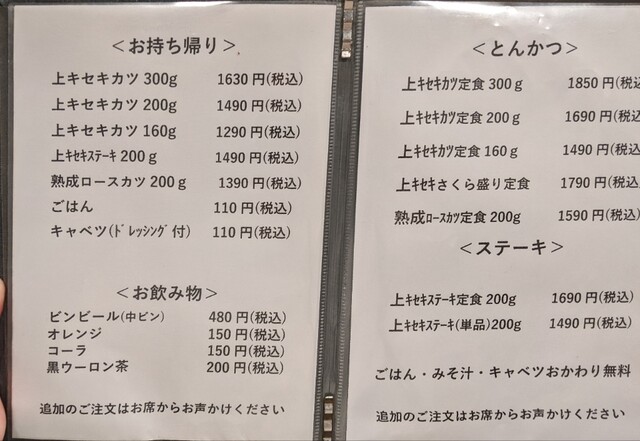 ＜お持ち帰り＞
上キセキカツ 300g 1630 円(税込)
上キセキカツ 200g 1490 円(税込)
上キセキカツ 160g 1290 円(税込)
上ｷｾｷｽﾃｰｷ 200ｇ 1490 円(税込)
熟成ロースカツ 200ｇ 1390 円(税込)
ごはん 110 円(税込)
キャベツ(ﾄﾞﾚｯｼﾝｸﾞ付) 110 円(税込)
＜お飲み物＞
ビンビール(中ビン) 480 円(税込)
オレンジ 150 円(税込)
コーラ 150 円(税込)
黒ウーロン茶 200 円(税込)
追加のご注文はお席からお声かけください
＜とんかつ＞
上ｷｾｷｶﾂ定食 300ｇ 1850 円(税込
上ｷｾｷｶﾂ定食 200ｇ 1690 円(税込
上ｷｾｷｶﾂ定食 160ｇ 1490 円(税込
上キセキさくら盛り定食 1790 円(税込
熟成ﾛｰｽｶﾂ定食 200g 1590 円(税込)
＜ステーキ＞
上ｷｾｷｽﾃｰｷ定食 200g 1690 円(税込)
上ｷｾｷｽﾃｰｷ(単品)200g 1490 円(税込)
ごはん・みそ汁・キャベツおかわり無料
追加のご注文はお席からお声かけください